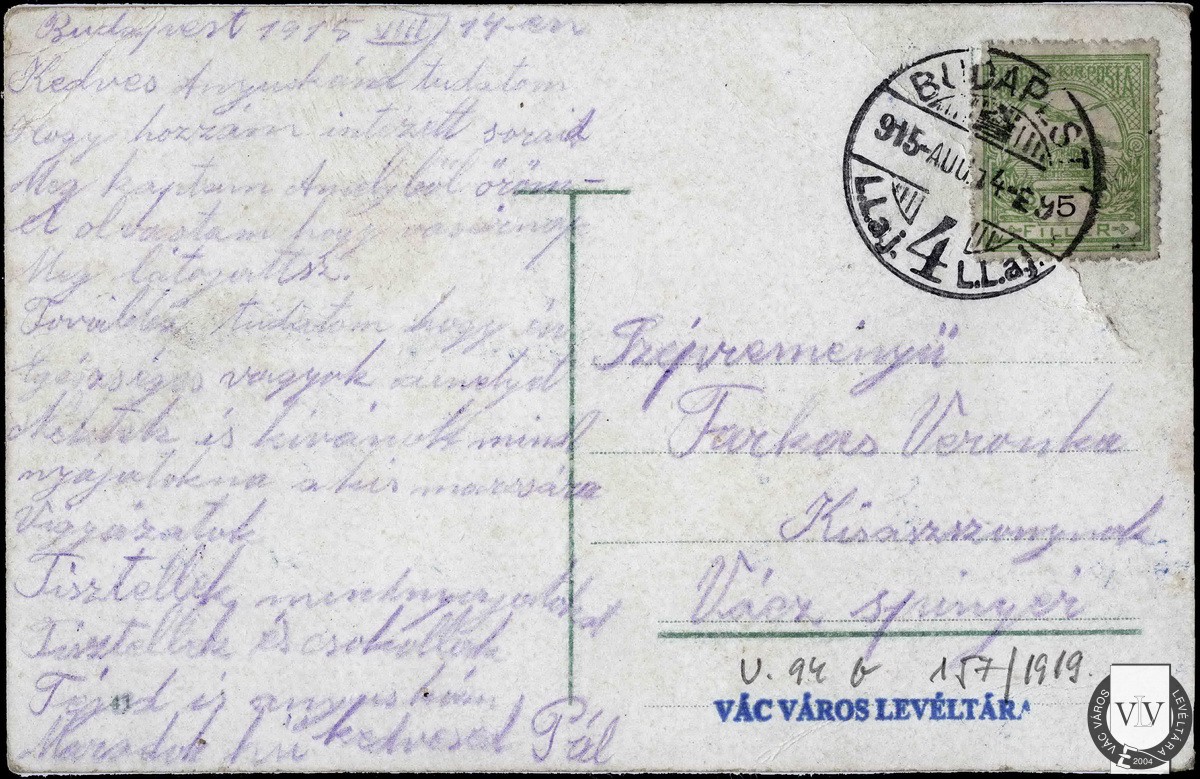 Budapest 1915 VIII/14-en
Kedves Anyuskám tudatom
Hogy hozzám intézett soraid
Meg kaptam Amelyből öröm-
el olvastam hogy vasárnap
Meg látogattsz.
Továbbá tudatom hogy én
Egésséges vagyok amelyd
Nektek is kívánok mind
nyajatokna a kis macsára
Viggyázatok
Tisztellek mindnyajatokat
Tisztellek és csokollak
Téjed is anyuskám
Maradok hű kedvesed Pál
BUDAPEST
915-AUG.14-
4
MAGY. KIR. POSTA
5
FILLÉR
Szépreményű
Farkas Veronka
Kisaszszonynak
Vácz
V. 94 b 157/1919.
VÁC VÁROS LEVÉLTÁRA
VÁC VÁROS LEVÉLTÁRA
VLV
2004